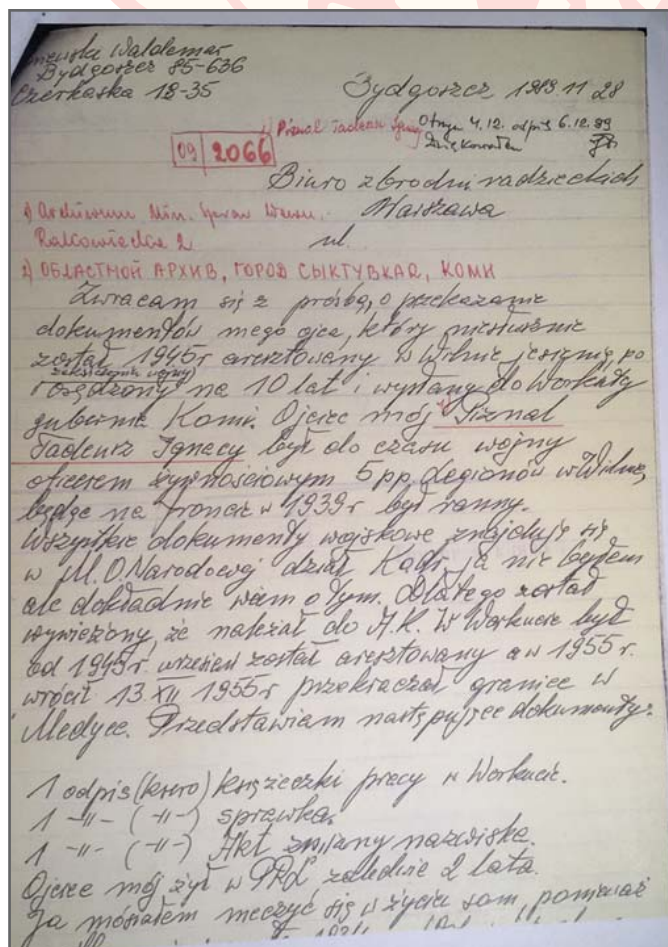 Waldemar
Bydgoszcz 85-636
Czerkaska 18-35
Bydgoszcz 1989 11 28
Piznal Tadeusz Ignacy
Otrzym 4.12. odpis 6.12.89
Dziękowałem
09 2066
Biuro zbrodni radzieckich
Warszawa
1) Archiwum Min. Spraw Wewn.
Rakowiecka 2
ul.
2) ОБЛАСТНОЙ АРХИВ, ГОРОД СЫКТУВКАР, КОМИ
Zwracam się z prośbą, o przekazanie
dokumentów mego ojca, który niesłusznie
został 1945r aresztowany w Wilnie jesienią, po
zakończeniu wojny
rosądzony na 10 lat i wysłany do Workuty
gubernia Komi. Ojciec mój Piznal
Tadeusz Ignacy był do czasu wojny
oficerem żywnościowym 5 pp. Legionów w Wilnie,
będąc na froncie w 1939r był ranny.
Wszystkie dokumenty wojskowe znajdują się
w M.O.Narodowej dział Kadr, ja nie byłem
ale dokładnie wiem o tym. Dlatego został
wywieziony, że należał do A.K. W Workucie był
od 1945r. wrzesień został aresztowany a w 1955r.
wrócił 13 XII 1955r przekraczał granicę w
Medyce. Przedstawiam następujące dokumenty:
1 odpis (ksero) książeczki pracy w Workucie.
1 -"- (-"-) sprawka.
1 -"- (-"-) Akt zmiany nazwiska.
Ojciec mój żył w PRL zaledwie 2 lata.
Ja mósiałem męczyć się w życiu sam, ponieważ